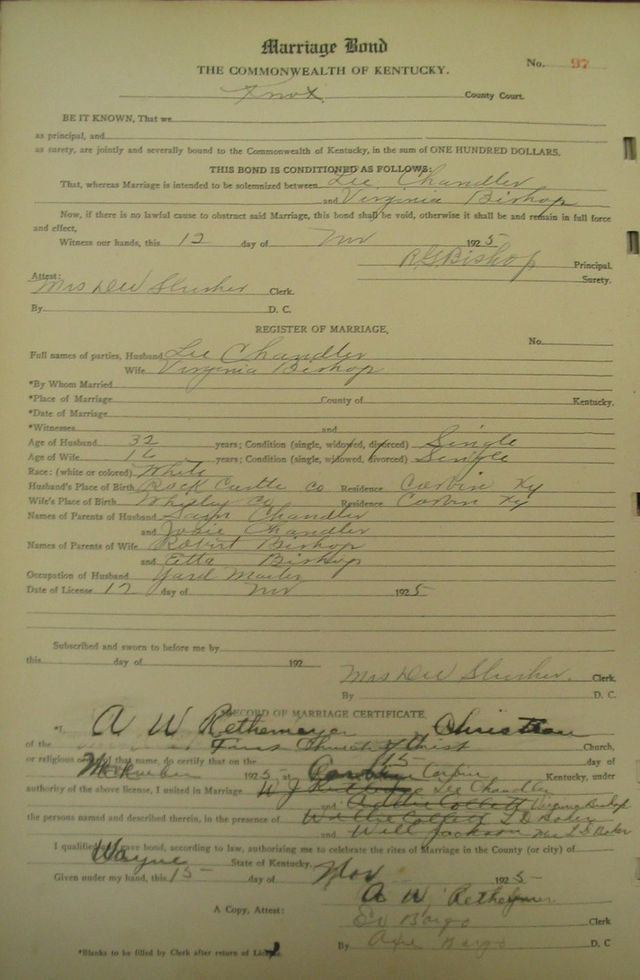 Marriage Bond
No. 97
THE COMMONWEALTH OF KENTUCKY.
Knox County Court.
BE IT KNOWN, That we
as principal, and
as surety, are jointly and severally bound to the Commonwealth of Kentucky, in the sum of ONE HUNDRED DOLLARS.
THIS BOND IS CONDITIONED AS FOLLOWS:
That, whereas Marriage is intended to be solemnized between Lee Chandler
and Virginia Bishop
Now, if there is no lawful cause to obstruct said Marriage, this bond shall be void, otherwise it shall be and remain in full force
and effect,
Witness our hands, this 12 day of Nov 1925
R G Bishop Principal.
Surety.
Attest:
Mrs Dee Slusher Clerk.
By D. C.
REGISTER OF MARRIAGE,
No.
Full names of parties, Husband Lee Chandler
Wife Virginia Bishop
*By Whom Married
*Place of Marriage County of Kentucky.
*Date of Marriage
*Witnesses and
Age of Husband 32 years; Condition (single, widowed, divorced) Single
Age of Wife years; Condition (single, widowed, divorced) Single
Race: (white or colored) White
Husband's Place of Birth Rock Castle co Residence Corbin Ky
Wife's Place of Birth Whitley co Residence Corbin Ky
Names of Parents of Husband Sam Chandler
and Chandler
Names of Parents of Wife Robert Bishop
and Etta Bishop
Occupation of Husband Yard Master
Date of License 12 day of Nov 1925
Subscribed and sworn to before me by
this day of 192
Mrs Dee Slusher Clerk.
By D. C.
RECORD OF MARRIAGE CERTIFICATE
*I, A W Rethemeyer Christian
of the First Church of Christ Church,
or religious order of that name, do certify that on the 15 day of
1925 at Corbin Kentucky, under
authority of the above license, I united in Marriage Lee Chandler
and Virginia Bishop
the persons named and described therein, in the presence of L D Baker
and Will Jackson Mrs L D Baker
I qualified and gave bond, according to law, authorizing me to celebrate the rites of Marriage in the County (or city) of
Wayne State of Kentucky.
Given under my hand, this 15 day of Nov 1925
A W Rethemeyer
A Copy, Attest: Bargo Clerk
By Bargo D. C
*Blanks to be filled by Clerk after return of License